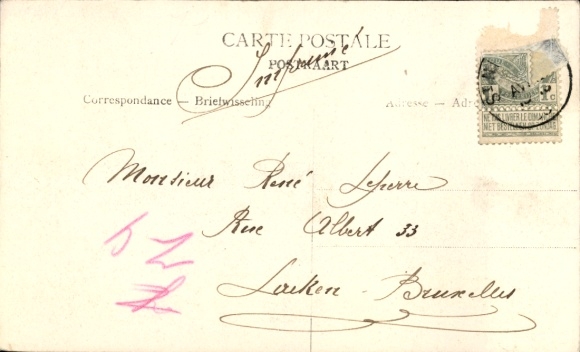 CARTE POSTALE
POSTKAART
Imprimé
Correspondance — Briefwisseling
Adresse — Adres
NE PAS LIVRER LE DIMANCHE
NIET BESTELLEN OP ZONDAG
Monsieur René Leperre
Rue Albert 33
Laeken - Bruxelles
52